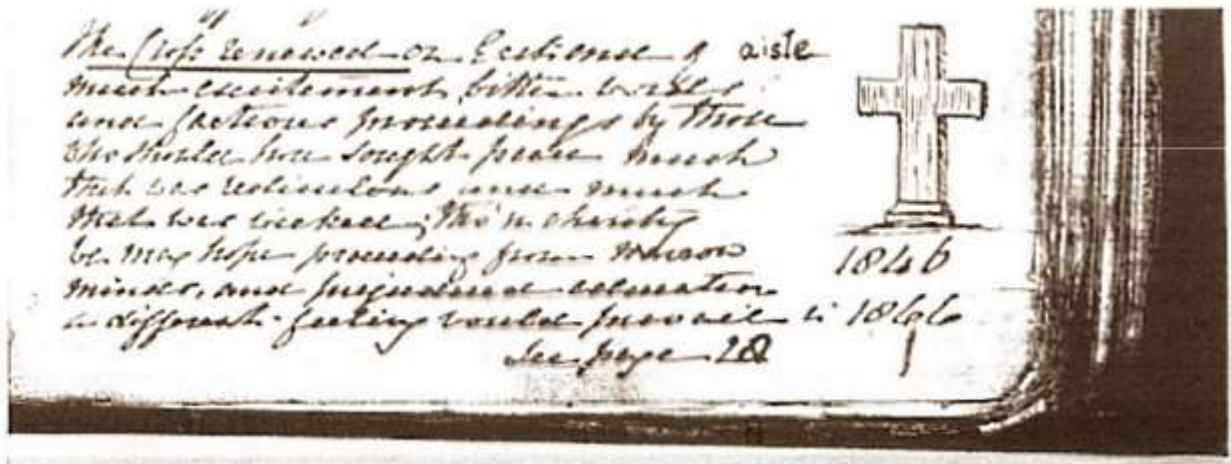 The Cross renewed on Eastend of aisle
much excitement, bitter words
and factious proceedings by those
who should have sought peace much
that was rediculous and much
that was wicked; tho' in charity
we may hope proceeding from narrow
minds, and prejudiced education
a different feeling would prevail in 1866
see page 28
1846